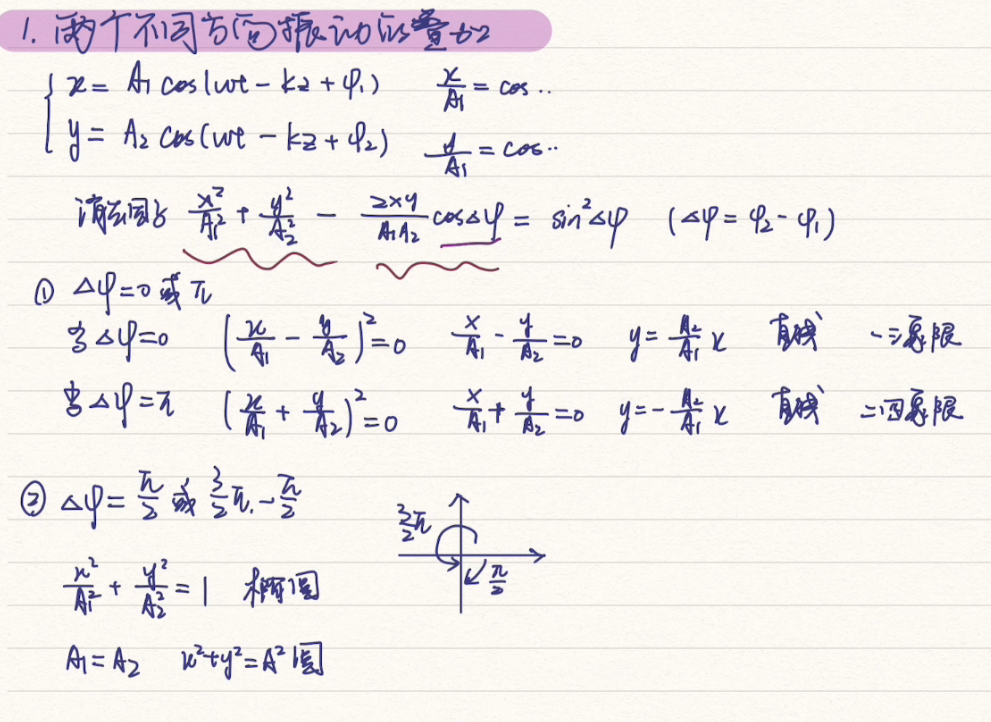 1. 两个不同方向振动的叠加
x = A₁ cos(ωt - kz + φ₁) x/A₁ = cos ..
y = A₂ cos(ωt - kz + φ₂) y/A₁ = cos ..
x²/A₁² + y²/A₂² - 2xy/A₁A₂ cosΔφ = sin²Δφ (Δφ = φ₂ - φ₁)
① Δφ=0 或 π
当 Δφ=0 (x/A₁ - y/A₂)² = 0 x/A₁ - y/A₂ = 0 y = A₂/A₁ x 直线 一三象限
当 Δφ=π (x/A₁ + y/A₂)² = 0 x/A₁ + y/A₂ = 0 y = - A₂/A₁ x 直线 二四象限
② Δφ = π/2 或 3/2 π. - π/2
3/2 π
π/2
x²/A₁² + y²/A₂² = 1 椭圆
A₁ = A₂ x²+y²=A² 圆